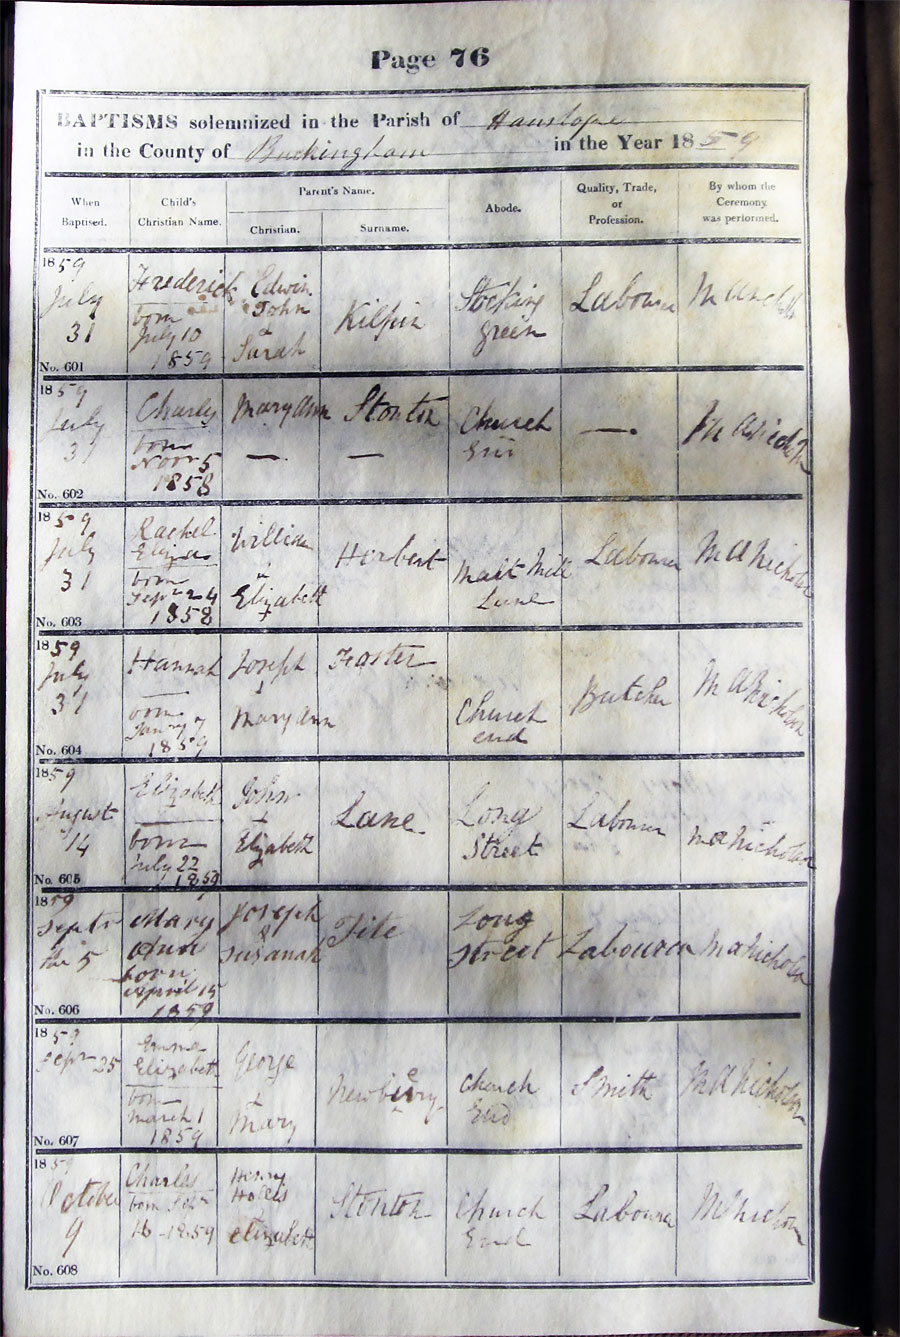 Page 76
BAPTISMS solemnized in the Parish of Hanslope
in the County of Buckingham in the Year 1859
When Baptised.
Child's Christian Name.
Parent's Name.
Christian.
Surname.
Abode.
Quality, Trade, or Profession.
By whom the Ceremony was performed.
1859
July
31
No. 601
Frederick
born
July 10
1859
Edwin
John
&
Sarah
Kilpin
Stocking
green
Labourer
1859
July
31
No. 602
Charles
born
Novr 5
1858
Mary Ann
—
Stonton
—
Church
End
—
1859
July
31
No. 603
Rachel
Eliza
born
Sepr 24
1858
William
&
Elizabeth
Herbert
Malt Mill
Lane
Labourer
M A Nicholson
1859
July
31
No. 604
Hannah
born
Janry 7
1859
Joseph
&
Mary Ann
Foster
Church
end
Butcher
M A Nicholson
1859
August
14
No. 605
Elizabeth
born
July 22
1859
John
&
Elizabeth
Lane
Long
Street
Labourer
M A Nicholson
1859
Septr
the 5
No. 606
Mary
Ann
born
April 15
1859
Joseph
&
Susanah
Tite
Long
Street
Labourer
M A Nicholson
1859
Sepr 25
No. 607
Emma
Elizabeth
born
March 1
1859
George
&
Mary
Newberry
Church
End
Smith
M A Nicholson
1859
October
9
No. 608
Charles
born Sepr
16 1859
Henry
&
Elizabeth
Stonton
Church
End
Labourer